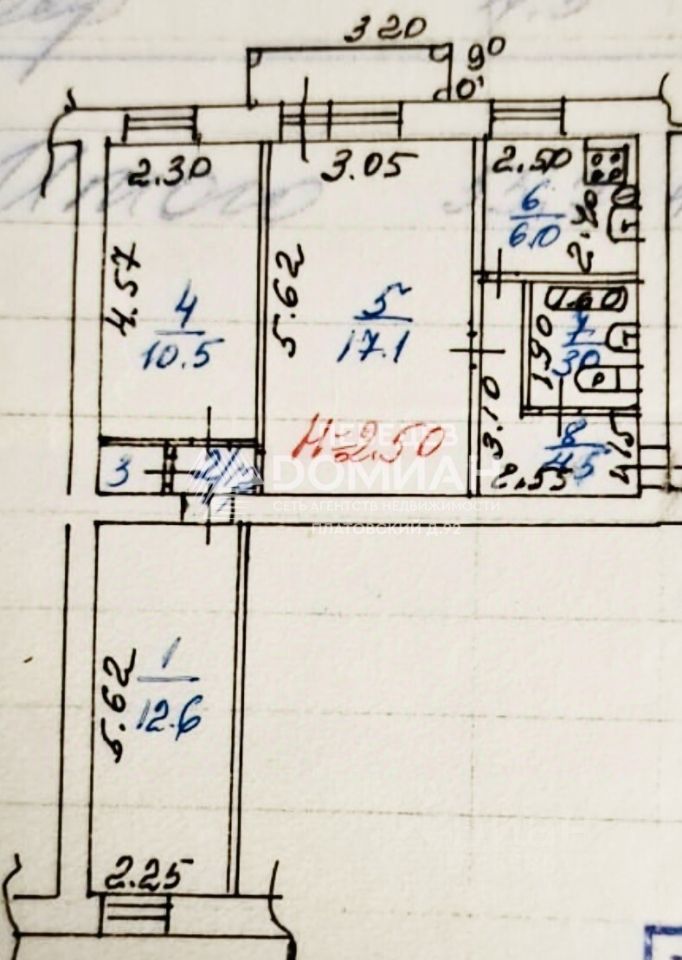 3 20
90
2.30
3.05
2.50
6
6.0
2.40
4.57
4
10.5
5.62
5
17.1
1.60
1.90
7
3.0
3.10
Н=2.50
8
4.5
2.55
3
2
ДОМИАН
СЕТЬ АГЕНТСТВ НЕДВИЖИМОСТИ
ПЛАТОВСКИЙ Д.92
5.62
1
12.6
2.25